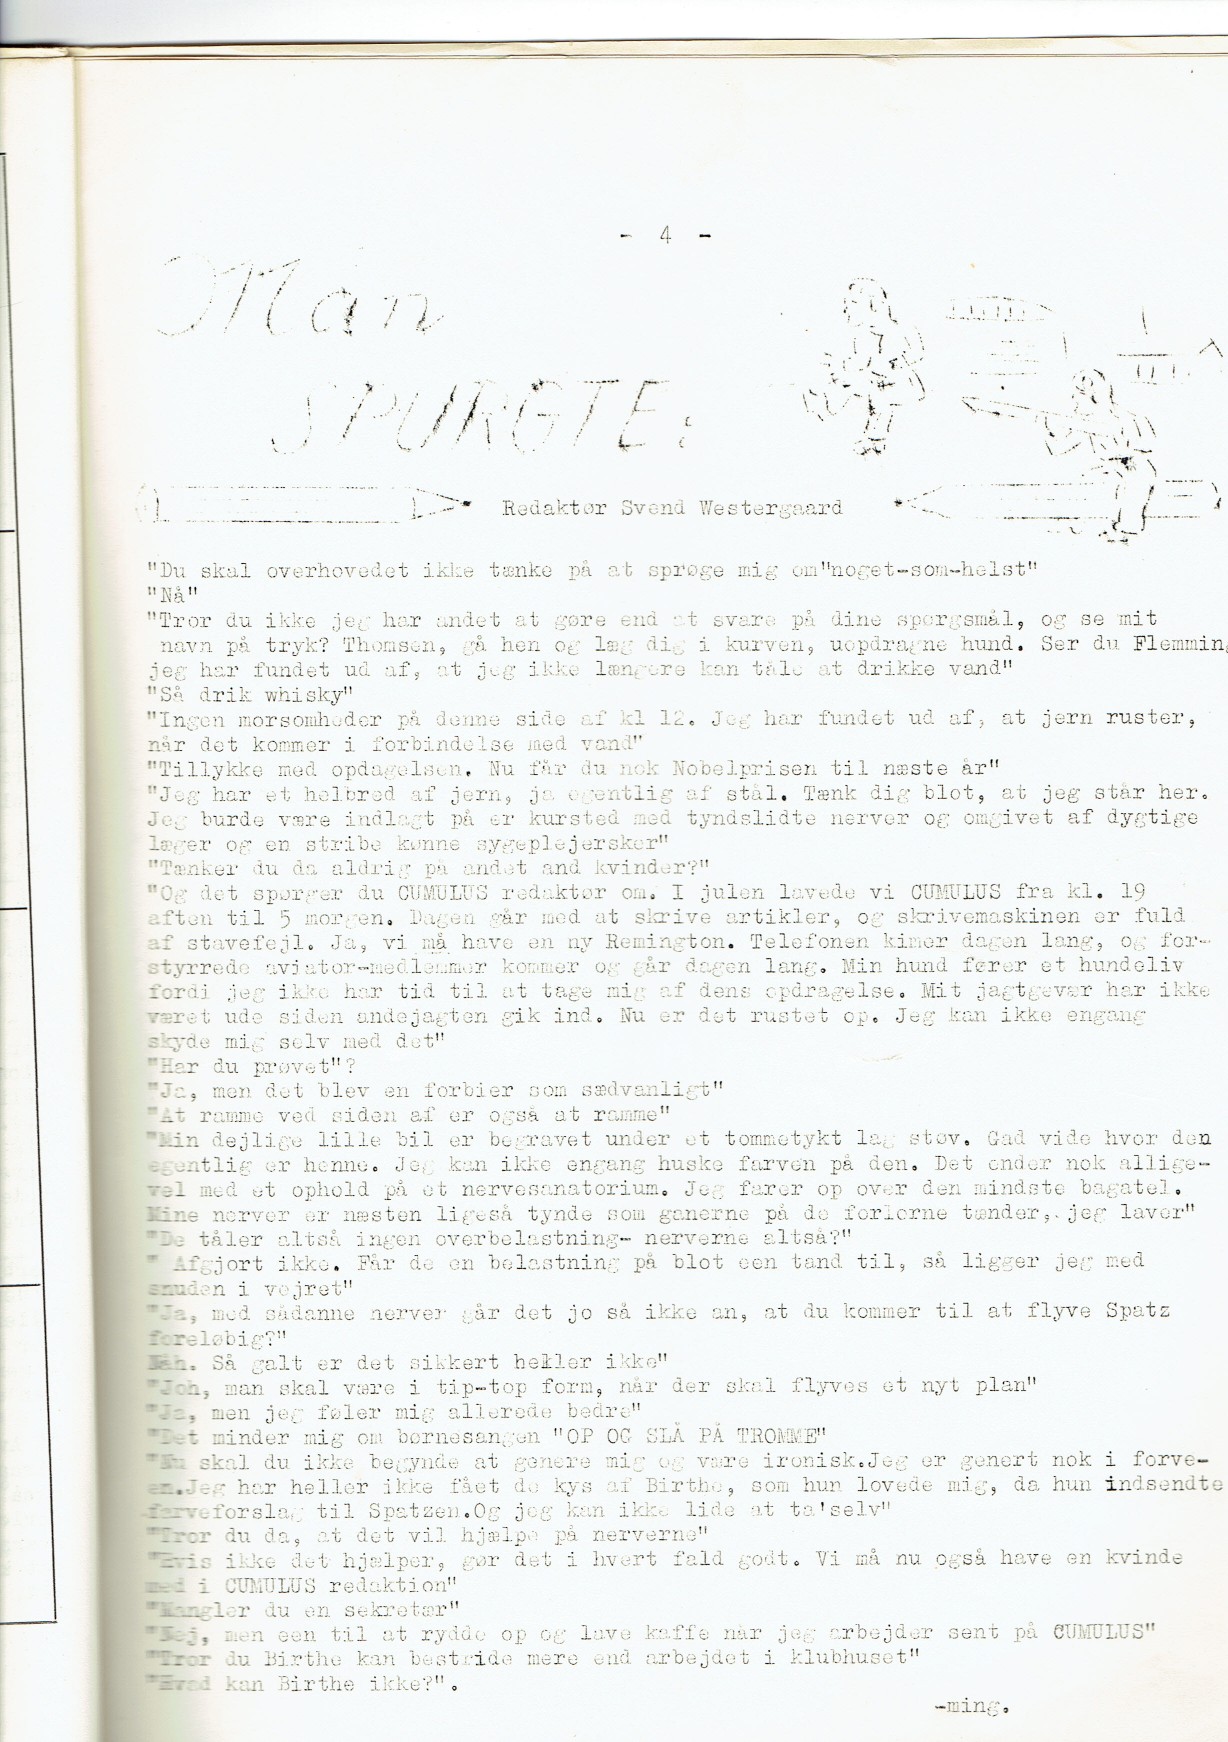 - 4 -
Man
SPURGTE:
Redaktør Svend Westergaard
"Du skal overhovedet ikke tænke på at sprøge mig om"noget-som-helst"
"Nå"
"Tror du ikke jeg har andet at gøre end at svare på dine spørgsmål, og se mit
navn på tryk? Thomsen, gå hen og læg dig i kurven, uopdragne hund. Ser du Flemming
jeg har fundet ud af, at jeg ikke længere kan tåle at drikke vand"
"Så drik whisky"
"Ingen morsomheder på denne side af kl 12. Jeg har fundet ud af, at jern ruster,
når det kommer i forbindelse med vand"
"Tillykke med opdagelsen. Nu får du nok Nobelprisen til næste år"
"Jeg har et helbred af jern, ja egentlig af stål. Tænk dig blot, at jeg står her.
Jeg burde være indlagt på er kursted med tyndslidte nerver og omgivet af dygtige
læger og en stribe kønne sygeplejersker"
"Tænker du da aldrig på andet and kvinder?"
"Og det spørger du CUMULUS redaktør om. I julen lavede vi CUMULUS fra kl. 19
aften til 5 morgen. Dagen går med at skrive artikler, og skrivemaskinen er fuld
af stavefejl. Ja, vi må have en ny Remington. Telefonen kimer dagen lang, og for-
styrrede aviator-medlemmer kommer og går dagen lang. Min hund fører et hundeliv
fordi jeg ikke har tid til at tage mig af dens opdragelse. Mit jagtgevær har ikke
været ude siden andejagten gik ind. Nu er det rustet op. Jeg kan ikke engang
skyde mig selv med det"
"Har du prøvet"?
"Ja, men det blev en forbier som sædvanligt"
"At ramme ved siden af er også at ramme"
"Min dejlige lille bil er begravet under et tommetykt lag støv. Gad vide hvor den
egentlig er henne. Jeg kan ikke engang huske farven på den. Det ender nok allige-
vel med et ophold på et nervesanatorium. Jeg farer op over den mindste bagatel.
Mine nerver er næsten ligeså tynde som ganerne på de forlorne tænder, jeg laver"
"De tåler altså ingen overbelastning- nerverne altså?"
" Afgjort ikke. Får de en belastning på blot een tand til, så ligger jeg med
snuden i vejret"
"Ja, med sådanne nerver går det jo så ikke an, at du kommer til at flyve Spatz
foreløbig?"
Nåh. Så galt er det sikkert heller ikke"
"Joh, man skal være i tip-top form, når der skal flyves et nyt plan"
"Ja, men jeg føler mig allerede bedre"
"Det minder mig om børnesangen "OP OG SLÅ PÅ TROMME"
"Nu skal du ikke begynde at genere mig og være ironisk.Jeg er genert nok i forve-
en.Jeg har heller ikke fået de kys af Birthe, som hun lovede mig, da hun indsendte
farveforslag til Spatzen.Og jeg kan ikke lide at ta'selv"
"Tror du da, at det vil hjælpe på nerverne"
"Hvis ikke det hjælper, gør det i hvert fald godt. Vi må nu også have en kvinde
med i CUMULUS redaktion"
"Mangler du en sekretær"
"Nej, men een til at rydde op og lave kaffe når jeg arbejder sent på CUMULUS"
"Tror du Birthe kan bestride mere end arbejdet i klubhuset"
"Hvad kan Birthe ikke?".
-ming.